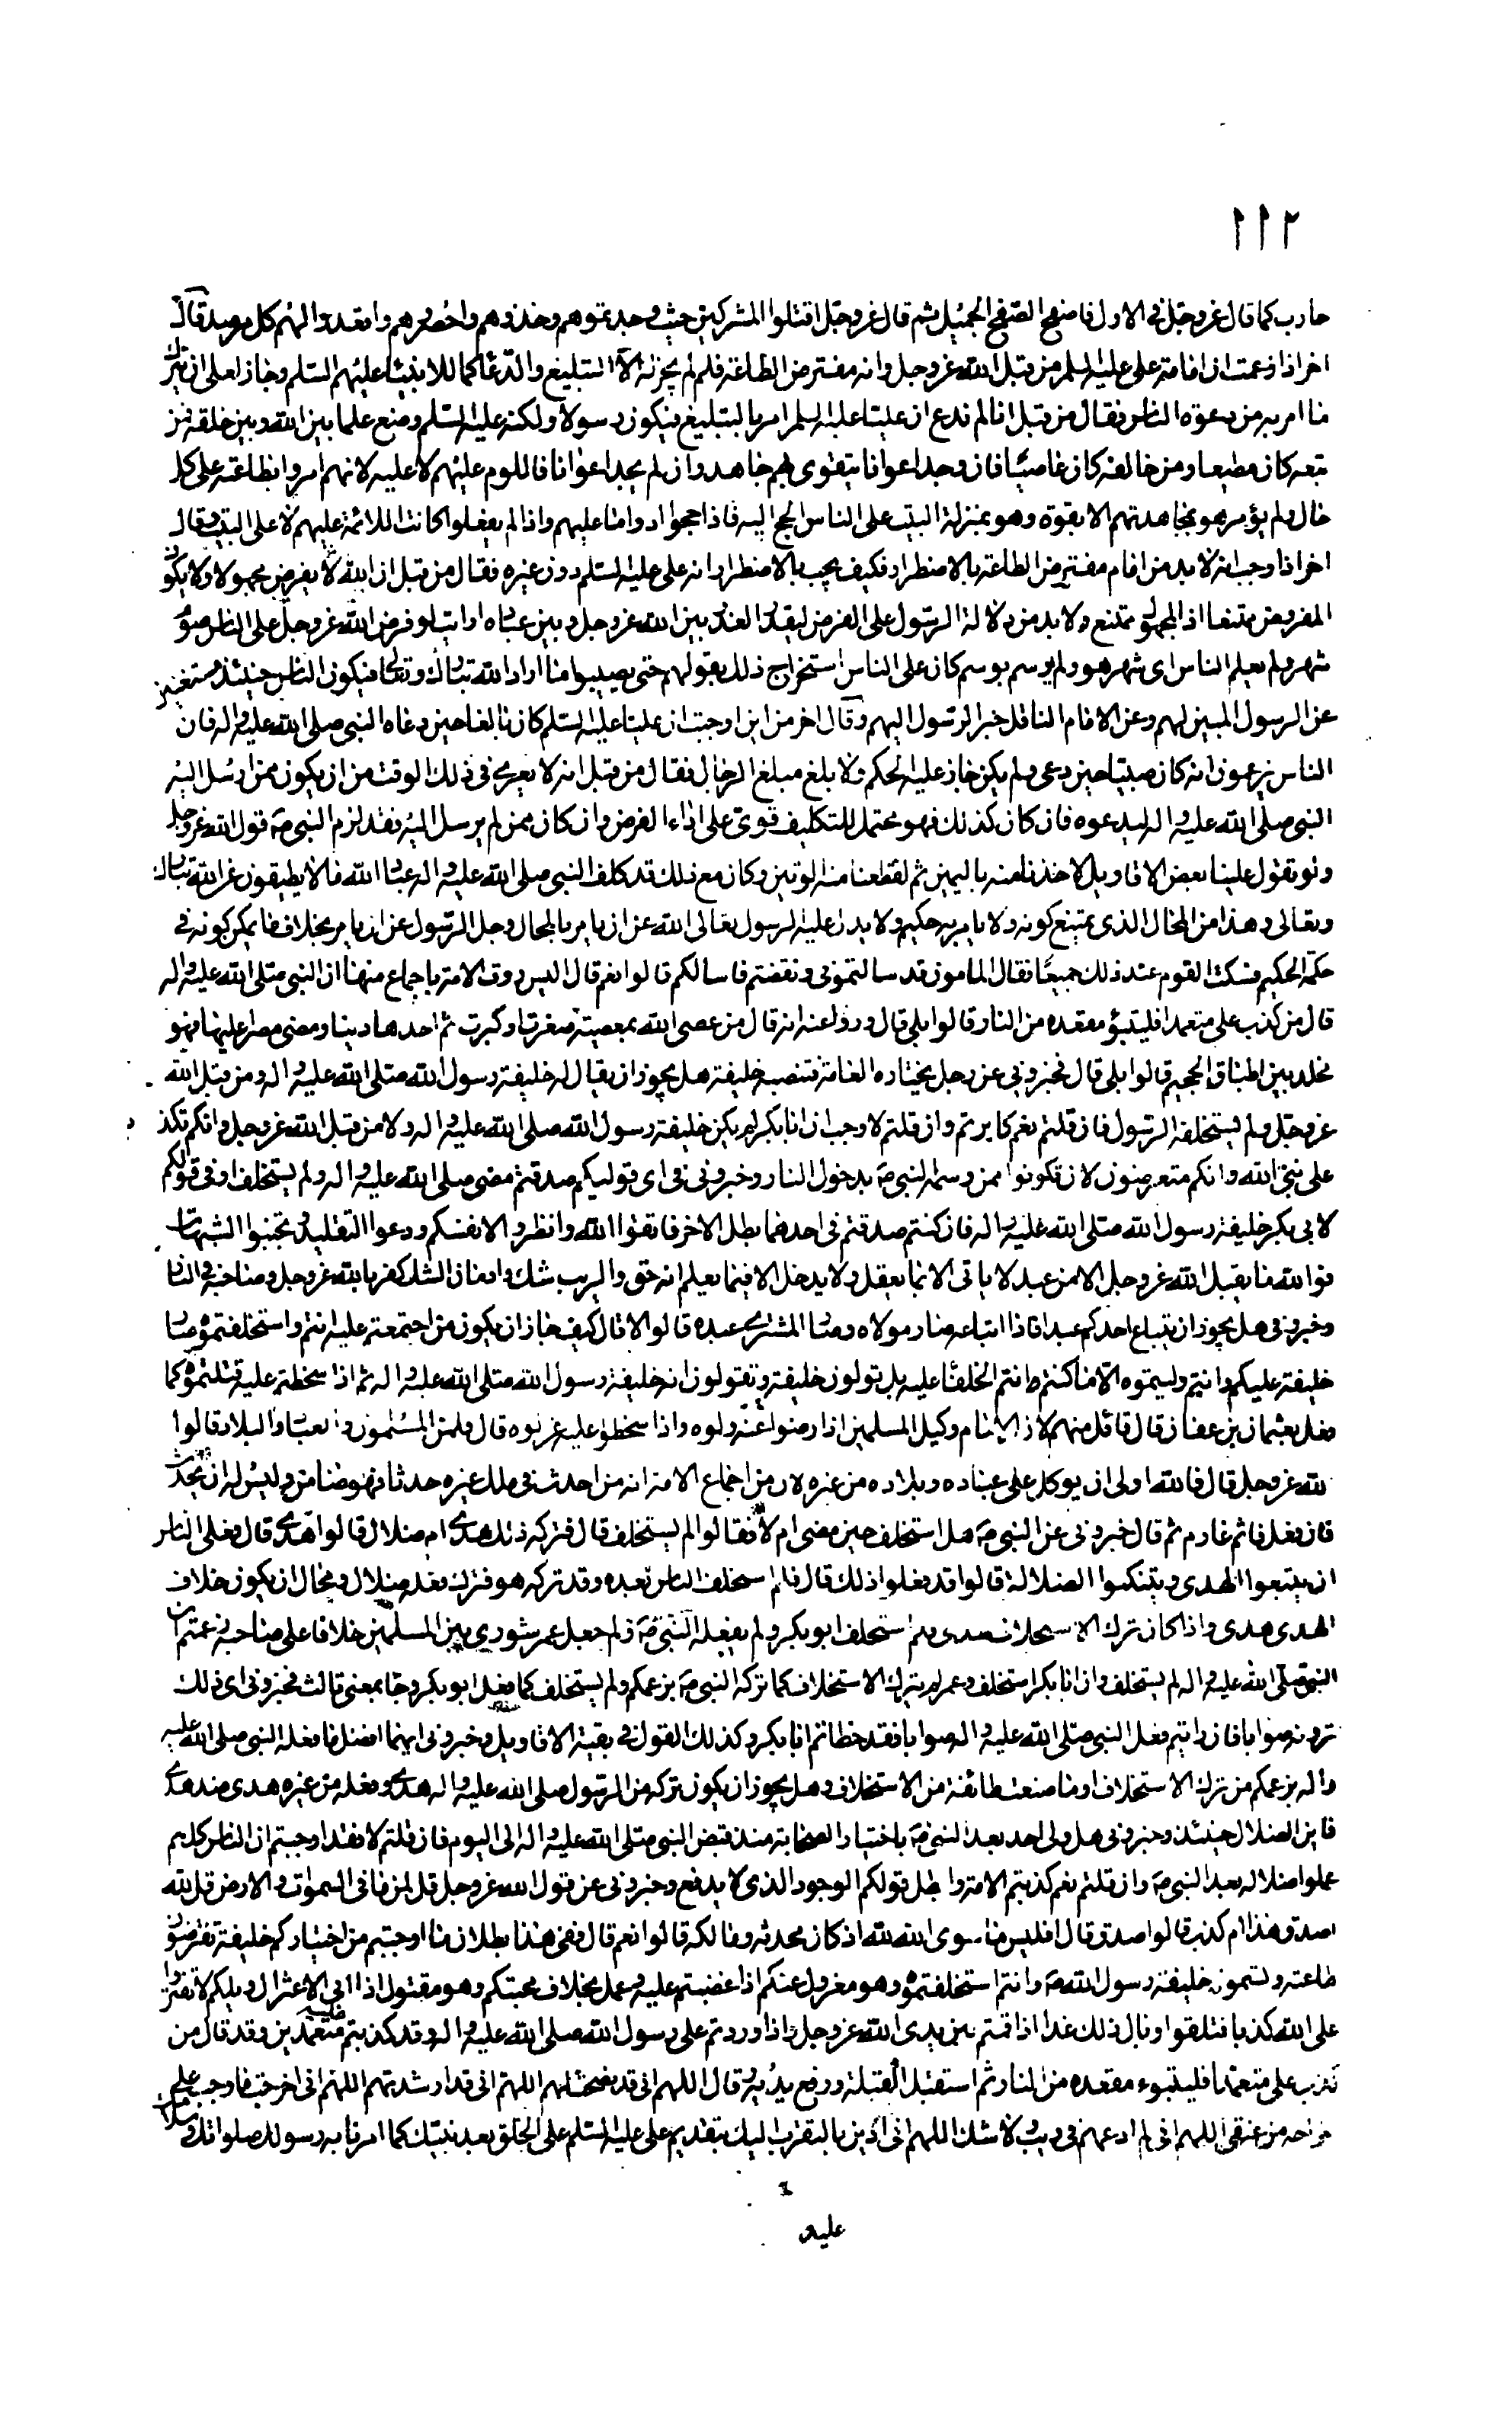 ١١٢
حارب كما قال عز وجل في الاول فاصفح الصفح الجميل ثم قال عز وجل اقتلوا المشركين حيث وجدتموهم وخذوهم واحصروهم واقعدوا لهم كل مرصد قال
اخر اذا زعمت ان امامة علي عليه السلم من قبل الله عز وجل وانه مفترض الطاعة فلم لم يجز له الا التبليغ والدعا كما للانبيا عليهم السلم وجاز لعلى ان يترك
ما امر به من دعوة الناس فقال من قبل انا لم ندع ان عليا عليه السلم امر بالتبليغ فيكون رسولا ولكنه عليه السلم وضع علما بين الله وبين خلقه فمن
تبعه كان مطيعا ومن خالفه كان عاصيا فان وجد اعوانا يتقوى بهم جاهد وان لم يجد اعوانا فاللوم عليهم لا عليه لانهم امروا بطاعته على كل
حال ولم يؤمر هو بمجاهدتهم الا بقوة وهو بمنزلة البيت على الناس الحج اليه فاذا حجوا ادوا ما عليهم واذا لم يفعلوا كانت اللائمة عليهم لا على البيت وقال
اخر اذا وجب انه لا بد من امام مفترض الطاعة بالاضطرار فكيف يجب بالاضطرار انه علي عليه السلم دون غيره فقال من قبل ان الله لا يفرض مجهولا ولا يكون
المفروض ممتنعا اذ المجهول ممتنع ولا بد من دلالة الرسول على الفرض ليقطع العذر بين الله عز وجل وبين عباده ارايت لو فرض الله عز وجل على الناس صوم
شهر ولم يعلم الناس اي شهر هو ولم يوسم بوسم كان على الناس استخراج ذلك بعقولهم حتى يصيبوا ما اراد الله تبارك وتعالى فيكون الناس حينئذ مستغنين
عن الرسول المبين لهم وعن الامام الناقل خبر الرسول اليهم وقال اخر من اين اوجبت ان عليا عليه السلم كان بالغا حين دعاه النبي صلى الله عليه واله فان
الناس يزعمون انه كان صبيا حين دعى ولم يكن جاز عليه الحكم ولا بلغ مبلغ الرجال فقال من قبل انه لا يعرى في ذلك الوقت من ان يكون ممن ارسل اليه
النبي صلى الله عليه واله ليدعوه فان كان كذلك فهو محتمل للتكليف قوي على اداء الفرض وان كان ممن لم يرسل اليه فقد لزم النبي صه قول الله عز وجل
ولو تقول علينا بعض الاقاويل لاخذنا منه باليمين ثم لقطعنا منه الوتين وكان مع ذلك قد كلف النبي صلى الله عليه واله عباد الله ما لا يطيقون عن الله تبارك
وتعالى وهذا من المحال الذي يمتنع كونه ولا يامر به حكيم ولا يدل عليه الرسول تعالى الله عن ان يامر بالمحال وجل الرسول عن ان يامر بخلاف ما يمكن كونه في
حكمة الحكيم فسكت القوم عند ذلك جميعا فقال المامون قد سالتموني ونقضتم فاسالكم قالوا نعم قال اليس روت الامة باجماع منها ان النبي صلى الله عليه واله
قال من كذب على متعمدا فليتبؤ مقعده من النار قالوا بلى قال ورووا عنه انه قال من عصى الله بمعصية صغرت او كبرت ثم اتخذها دينا ومضى مصرا عليها فهو
مخلد بين اطباق الجحيم قالوا بلى قال فخبروني عن رجل يختاره العامة فتنصبه خليفة هل يجوز ان يقال له خليفة رسول الله صلى الله عليه واله ومن قبل الله
عز وجل ولم يستخلفه الرسول فان قلتم نعم كابرتم وان قلتم لا وجب ان ابابكر لم يكن خليفة رسول الله صلى الله عليه واله ولا من قبل الله عز وجل وانكم تكذبون
على نبي الله وانكم متعرضون لان تكونوا ممن وسمه النبي صه بدخول النار وخبروني في اي قوليكم صدقتم مضى صلى الله عليه واله ولم يستخلف او في قولكم
لابي بكر خليفة رسول الله صلى الله عليه واله فان كنتم صدقتم في احدهما بطل الاخر فاتقوا الله وانظروا لانفسكم ودعوا التقليد وتجنبوا الشبهات
فوالله ما يقبل الله عز وجل الا من عبد لا ياتى الا بما يعقل ولا يدخل الا فيما يعلم انه حق والريب شك وادمان الشك كفر بالله عز وجل وصاحبه في النار
وخبروني هل يجوز ان يبتاع احدكم عبدا فاذا ابتاعه صار مولاه وصار المشتري عبده قالوا لا قال كيف جاز ان يكون من اجتمعتم عليه انتم واستخلفتموه صار
خليفة عليكم وانتم وليتموه الا كنتم انتم الخلفا عليه بل تولون خليفة وتقولون انه خليفة رسول الله صلى الله عليه واله ثم اذا سخطتم عليه قتلتموه كما
فعل بعثمان بن عفان قال قائل منهم لان الامام وكيل المسلمين اذا رضوا عنه ولوه واذا سخطوا عليه عزلوه قال فلمن المسلمون والعباد والبلاد قالوا
لله عز وجل قال فالله اولى ان يوكل على عباده وبلاده من غيره لان من اجماع الامة انه من احدث في ملك غيره حدثا فهو ضامن وليس له ان يحدث
فان فعل فاثم غارم ثم قال خبروني عن النبي صه هل استخلف حين مضى ام لا فقالوا لم يستخلف قال فتركه ذلك هدى ام ضلال قالوا هدى قال فعلى الناس
ان يتبعوا الهدى ويتنكبوا الضلالة قالوا قد فعلوا ذلك قال فلم استخلف الناس بعده وقد تركه هو فترك فعله ضلال ومحال ان يكون خلاف
الهدى هدى واذا كان ترك الاستخلاف هدى فلم استخلف ابو بكر ولم يفعله النبي صه ولم جعل عمر شورى بين المسلمين خلافا على صاحبه زعمتم ان
النبي صلى الله عليه واله لم يستخلف وان ابابكر استخلف وعمر لم يترك الاستخلاف كما تركه النبي صه بزعمكم ولم يستخلف كما فعل ابو بكر وجا بمعنى ثالث فخبروني اي ذلك
ترونه صوابا فان رايتم فعل النبي صلى الله عليه واله صوابا فقد خطاتم ابا بكر وكذلك القول في بقية الاقاويل وخبروني ايهما افضل ما فعله النبي صلى الله عليه
واله بزعمكم من ترك الاستخلاف او ما صنعت طائفة من الاستخلاف وهل يجوز ان يكون تركه من الرسول صلى الله عليه واله هدى وفعله من غيره هدى ضد هدى
فاين الضلال حينئذ وخبروني هل ولى احد بعد النبي صه باختيار الصحابة منذ قبض النبي صلى الله عليه واله الى اليوم فان قلتم لا فقد اوجبتم ان الناس كلهم
عملوا ضلالة بعد النبي صه وان قلتم نعم كذبتم الامة وابطل قولكم الوجود الذي لا يدفع وخبروني عن قول الله عز وجل قل لمن ما في السموات والارض قل لله
اصدق هذا ام كذب قالوا صدق قال افليس ما سوى الله لله اذ كان محدثه ومالكه قالوا نعم قال ففي هذا بطلان ما اوجبتم من اختياركم خليفة تفترضون
طاعته وتسمونه خليفة رسول الله صه وانتم استخلفتموه وهو معزول عنكم اذا غضبتم عليه وعمل بخلاف محبتكم وهو مقتول اذا ابى الاعتزال ويلكم لا تفتروا
على الله كذبا فتلقوا وبال ذلك غدا اذا قمتم بين يدى الله عز وجل واذا وردتم على رسول الله صلى الله عليه واله وقد كذبتم عليه متعمدين وقد قال من
كذب على متعمدا فليتبوء مقعده من النار ثم استقبل القبلة ورفع يديه وقال اللهم اني قد نصحت لهم اللهم اني قد ارشدتهم اللهم اني اخرجت ما وجب علي
اخراجه من عنقي اللهم اني لم ادعهم في ريب ولا شك اللهم اني ادين بالتقرب اليك بتقديم علي عليه السلم على الخلق بعد نبيك كما امرنا به رسولك صلواتك وسلامك
عليه